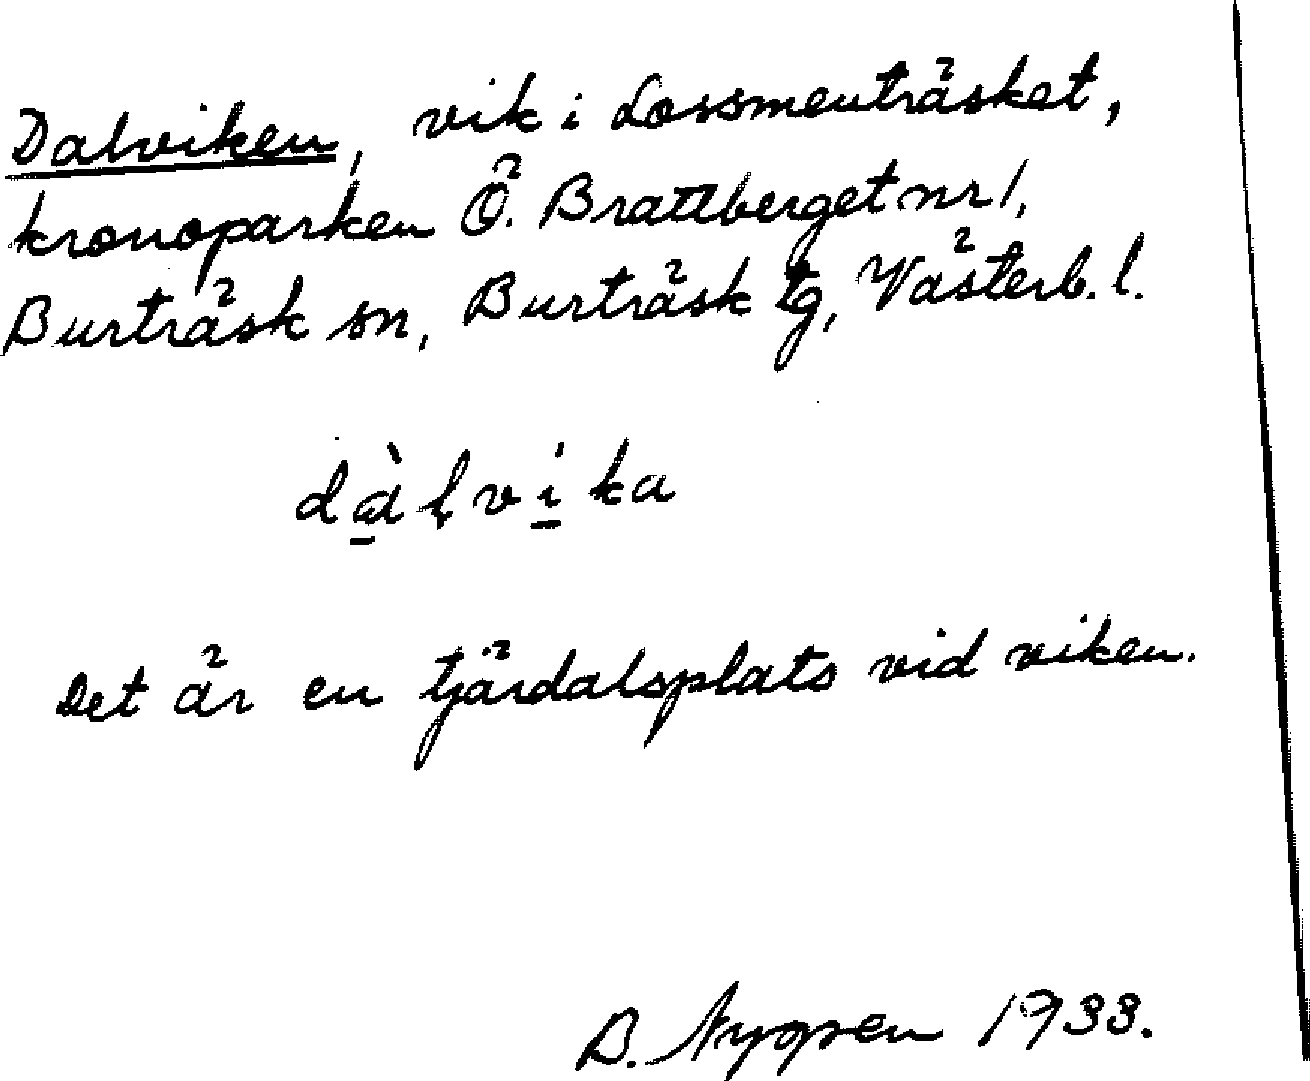 Dalviken, vik i Lossmenträsket,
kronoparken Ö. Brattberget nr 1,
Burträsk sn, Burträsk tg, Västerb. l.
dà̱ḷví̱ka
Det är en tjärdalsplats vid viken.
B. Nygren 1933.